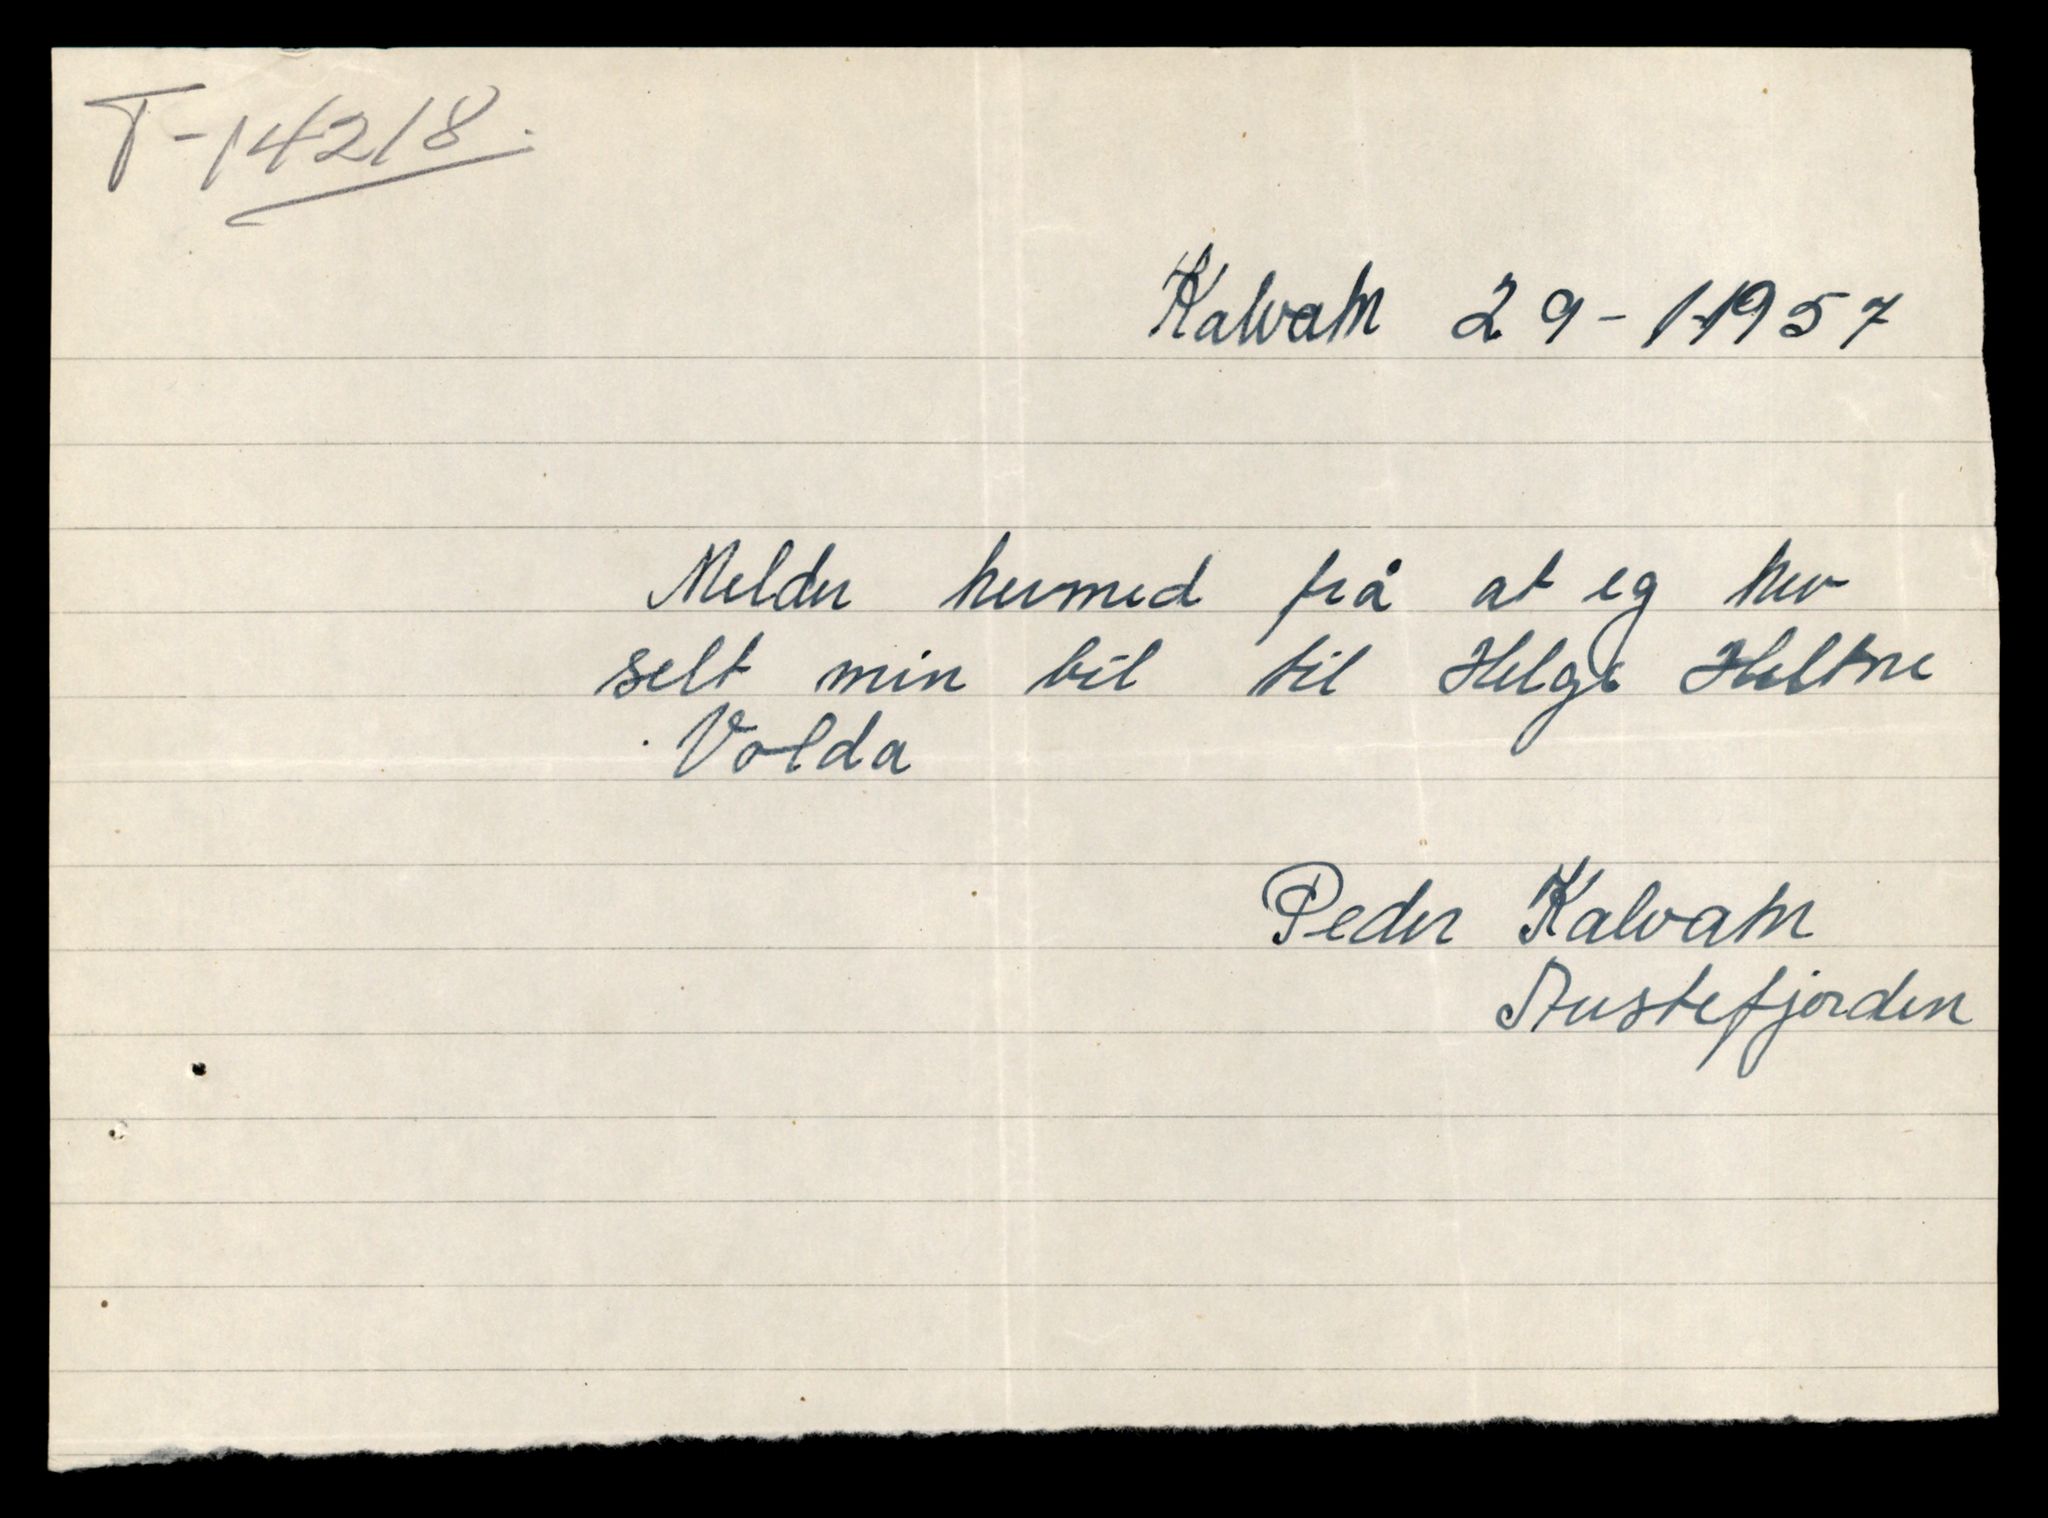 T-14218.
Kalvatn 29-1-1957
Melder hermed frå at eg hev
selt min bil til Helge Heltne
Volda
Peder Kalvatn
Austefjorden